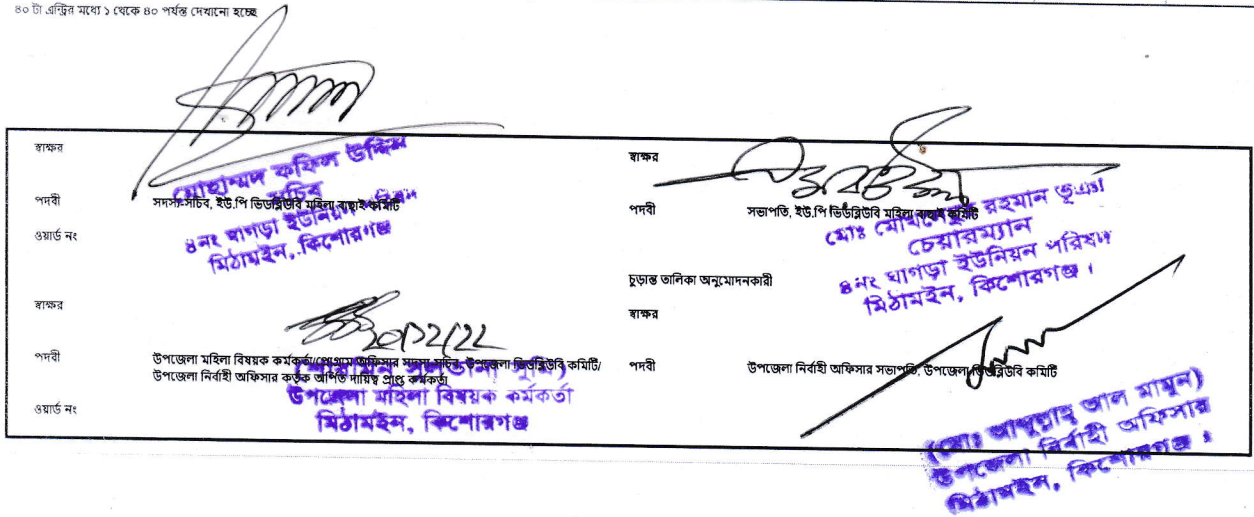 ৪০ টা এন্ট্রির মধ্যে ১ থেকে ৪০ পর্যন্ত দেখানো হচ্ছে
স্বাক্ষর
মোহাম্মদ কফিল উদ্দিন
সচিব
পদবী
সদস্য-সচিব, ইউ.পি ভিডব্লিউবি মহিলা বাছাই কমিটি
৪নং ঘাগড়া ইউনিয়ন পরিষদ
মিঠামইন, কিশোরগঞ্জ
ওয়ার্ড নং
স্বাক্ষর
পদবী
সভাপতি, ইউ.পি ভিডব্লিউবি মহিলা বাছাই কমিটি
মোঃ রহমান ভূঞা
চেয়ারম্যান
৪নং ঘাগড়া ইউনিয়ন পরিষদ
মিঠামইন, কিশোরগঞ্জ।
চূড়ান্ত তালিকা অনুমোদনকারী
স্বাক্ষর
২০/১২/২২
পদবী
উপজেলা মহিলা বিষয়ক কর্মকর্তা/প্রোগ্রাম অফিসার সদস্য সচিব, উপজেলা ভিডব্লিউবি কমিটি/
উপজেলা নির্বাহী অফিসার কর্তৃক অর্পিত দায়িত্ব প্রাপ্ত কর্মকর্তা
উপজেলা মহিলা বিষয়ক কর্মকর্তা
মিঠামইন, কিশোরগঞ্জ
ওয়ার্ড নং
স্বাক্ষর
পদবী
উপজেলা নির্বাহী অফিসার সভাপতি, উপজেলা ভিডব্লিউবি কমিটি
(মোঃ আল মামুন)
উপজেলা নির্বাহী অফিসার
মিঠামইন, কিশোরগঞ্জ।